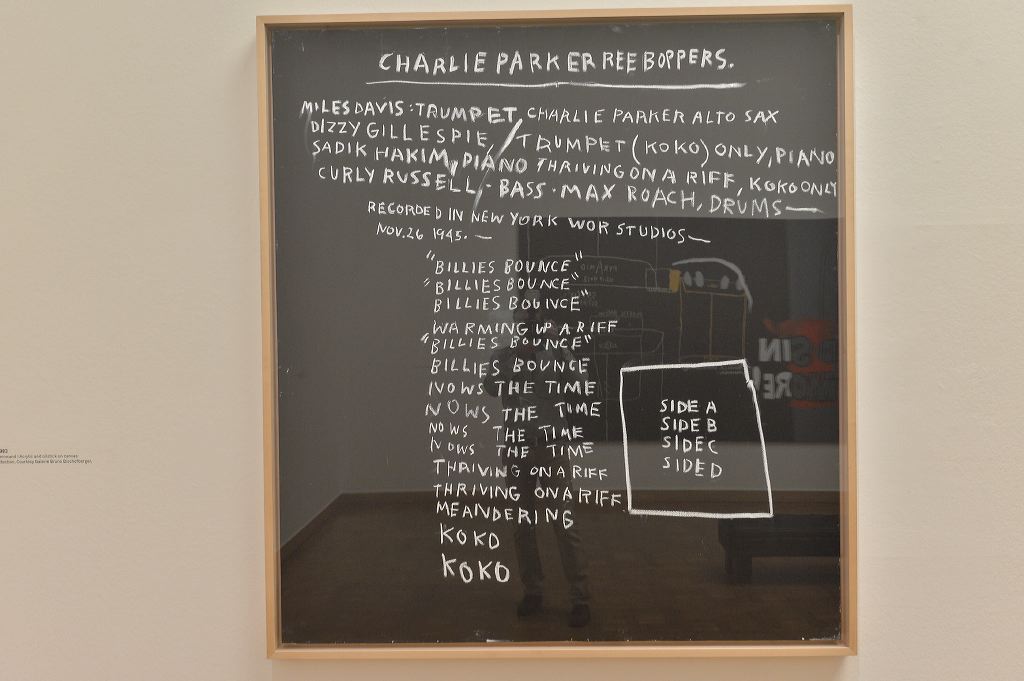 CHARLIE PARKER REEBOPPERS.
MILES DAVIS: TRUMPET, CHARLIE PARKER ALTO SAX
DIZZY GILLESPIE / TRUMPET (KOKO) ONLY, PIANO
SADIK HAKIM, PIANO THRIVING ON A RIFF, KOKO ONLY
CURLY RUSSELL - BASS · MAX ROACH, DRUMS—
RECORDED IN NEW YORK WOR STUDIOS—
NOV. 26 1945. —
"BILLIES BOUNCE"
"BILLIES BOUNCE"
BILLIES BOUNCE"
WARMING UP A RIFF
"BILLIES BOUNCE"
BILLIES BOUNCE
NOWS THE TIME
NOWS THE TIME
NOWS THE TIME
NOWS THE TIME
THRIVING ON A RIFF
THRIVING ON A RIFF
MEANDERING
KOKO
KOKO
SIDE A
SIDE B
SIDE C
SIDE D